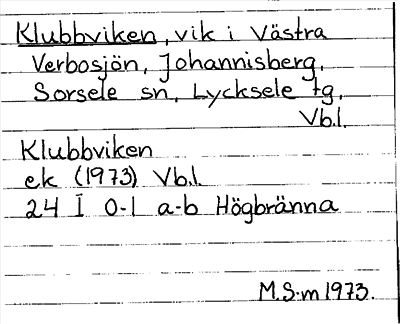 Klubbviken, vik i Västra
Verbosjön, Johannisberg,
Sorsele sn, Lycksele tg,
Vb.l.
Klubbviken
ek (1973) Vb.l.
24 I 0-1 a-b Högbränna
M.S-m 1973.